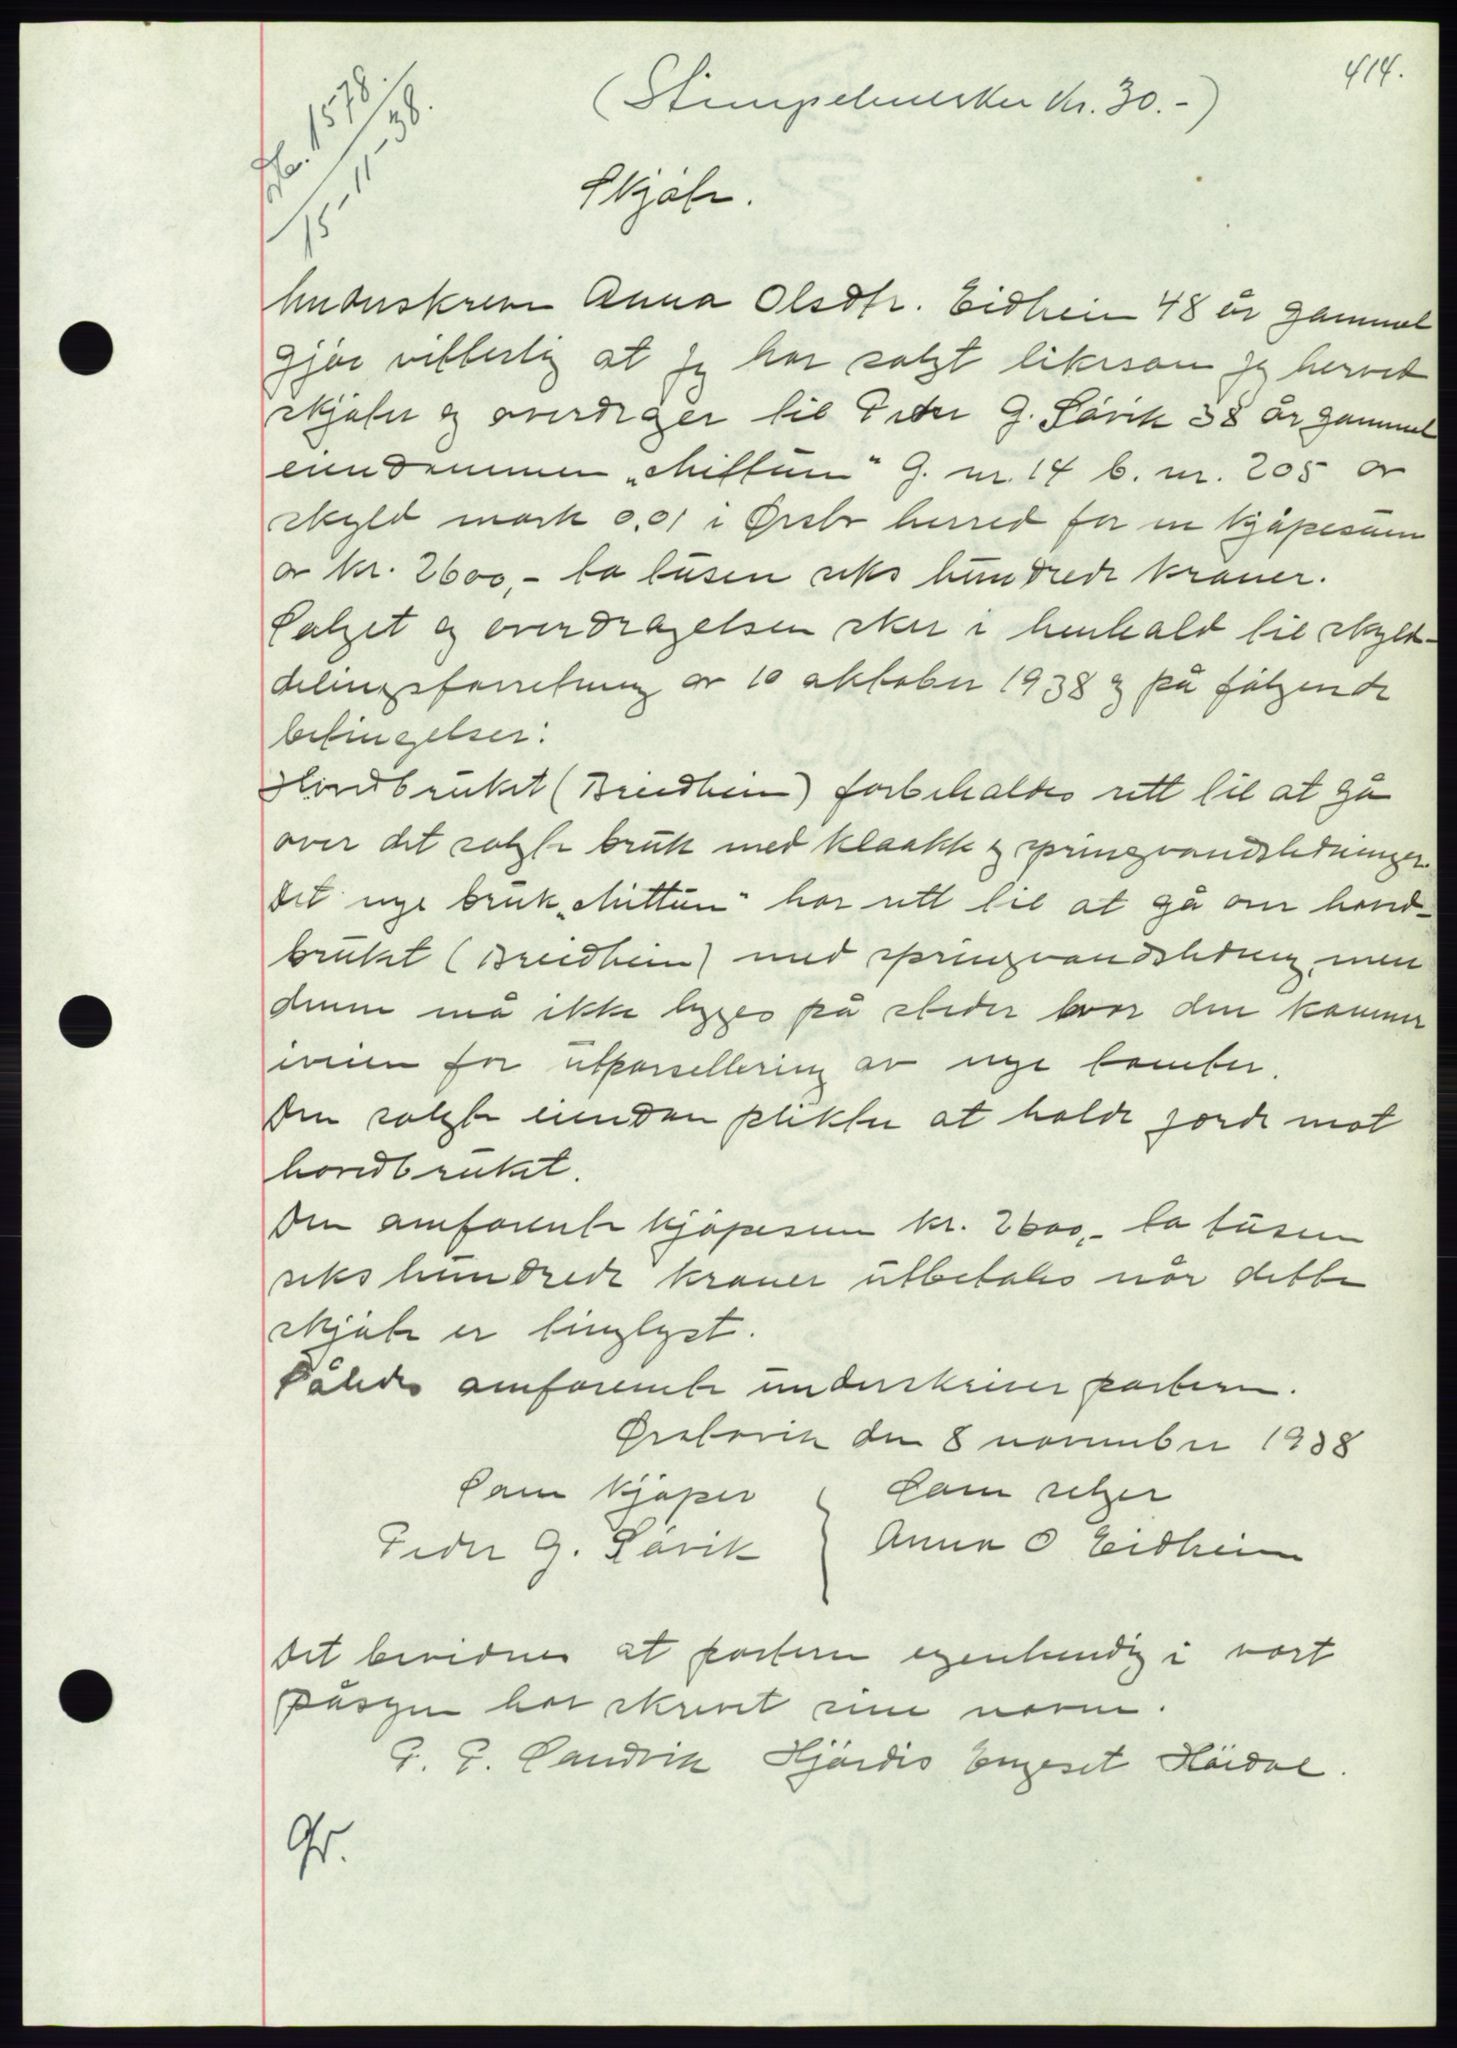 414.
(Stempelmerker Kr. 30.-)
No. 1578
15-11-38.
Skjöte.
Underskreven Anna Olsdtr. Eidheim 48 år gammel
gjör vitterlig at jeg har solgt likesom jeg herved
skjöter og overdrager til Peder G. Sävik 38 år gammel
eiendommen „Mittun" G. nr. 14 b. nr. 205 av
skyld mark 0,01 i Ørsta herred for en kjöpesum
av kr. 2600,- to tusen seks hundrede kroner.
Salget og overdragelsen sker i henhold til skyld-
delingsforretning av 10 oktober 1938 og på fölgende
betingelser:
Hovedbruket (Breidheim) forbeholdes rett til at gå
over det solgte bruk med kloakk og springvandsledninger.
Det nye bruk „Mittun" har rett til at gå over hoved-
bruket (Breidheim) med springvandsledning, men
denne må ikke legges på steder hvor den kommer
iveien for utparsellering av nye tomter.
Den solgte eiendom plikter at holde gjerde mot
hovedbruket.
Den omforente kjöpesum kr. 2600,- to tusen
seks hundrede kroner utbetales når dette
skjöte er tinglyst.
Således omforente underskriver partene.
Ørstavik den 8 november 1938
Som kjöper Som selger
Peder G. Sävik Anna O Eidheim
Det bevidnes at partene egenhendig i vort
påsyn har skrevet sine navne.
P. P. Sandvik Hjördis Engeset Höidal.
Gr.